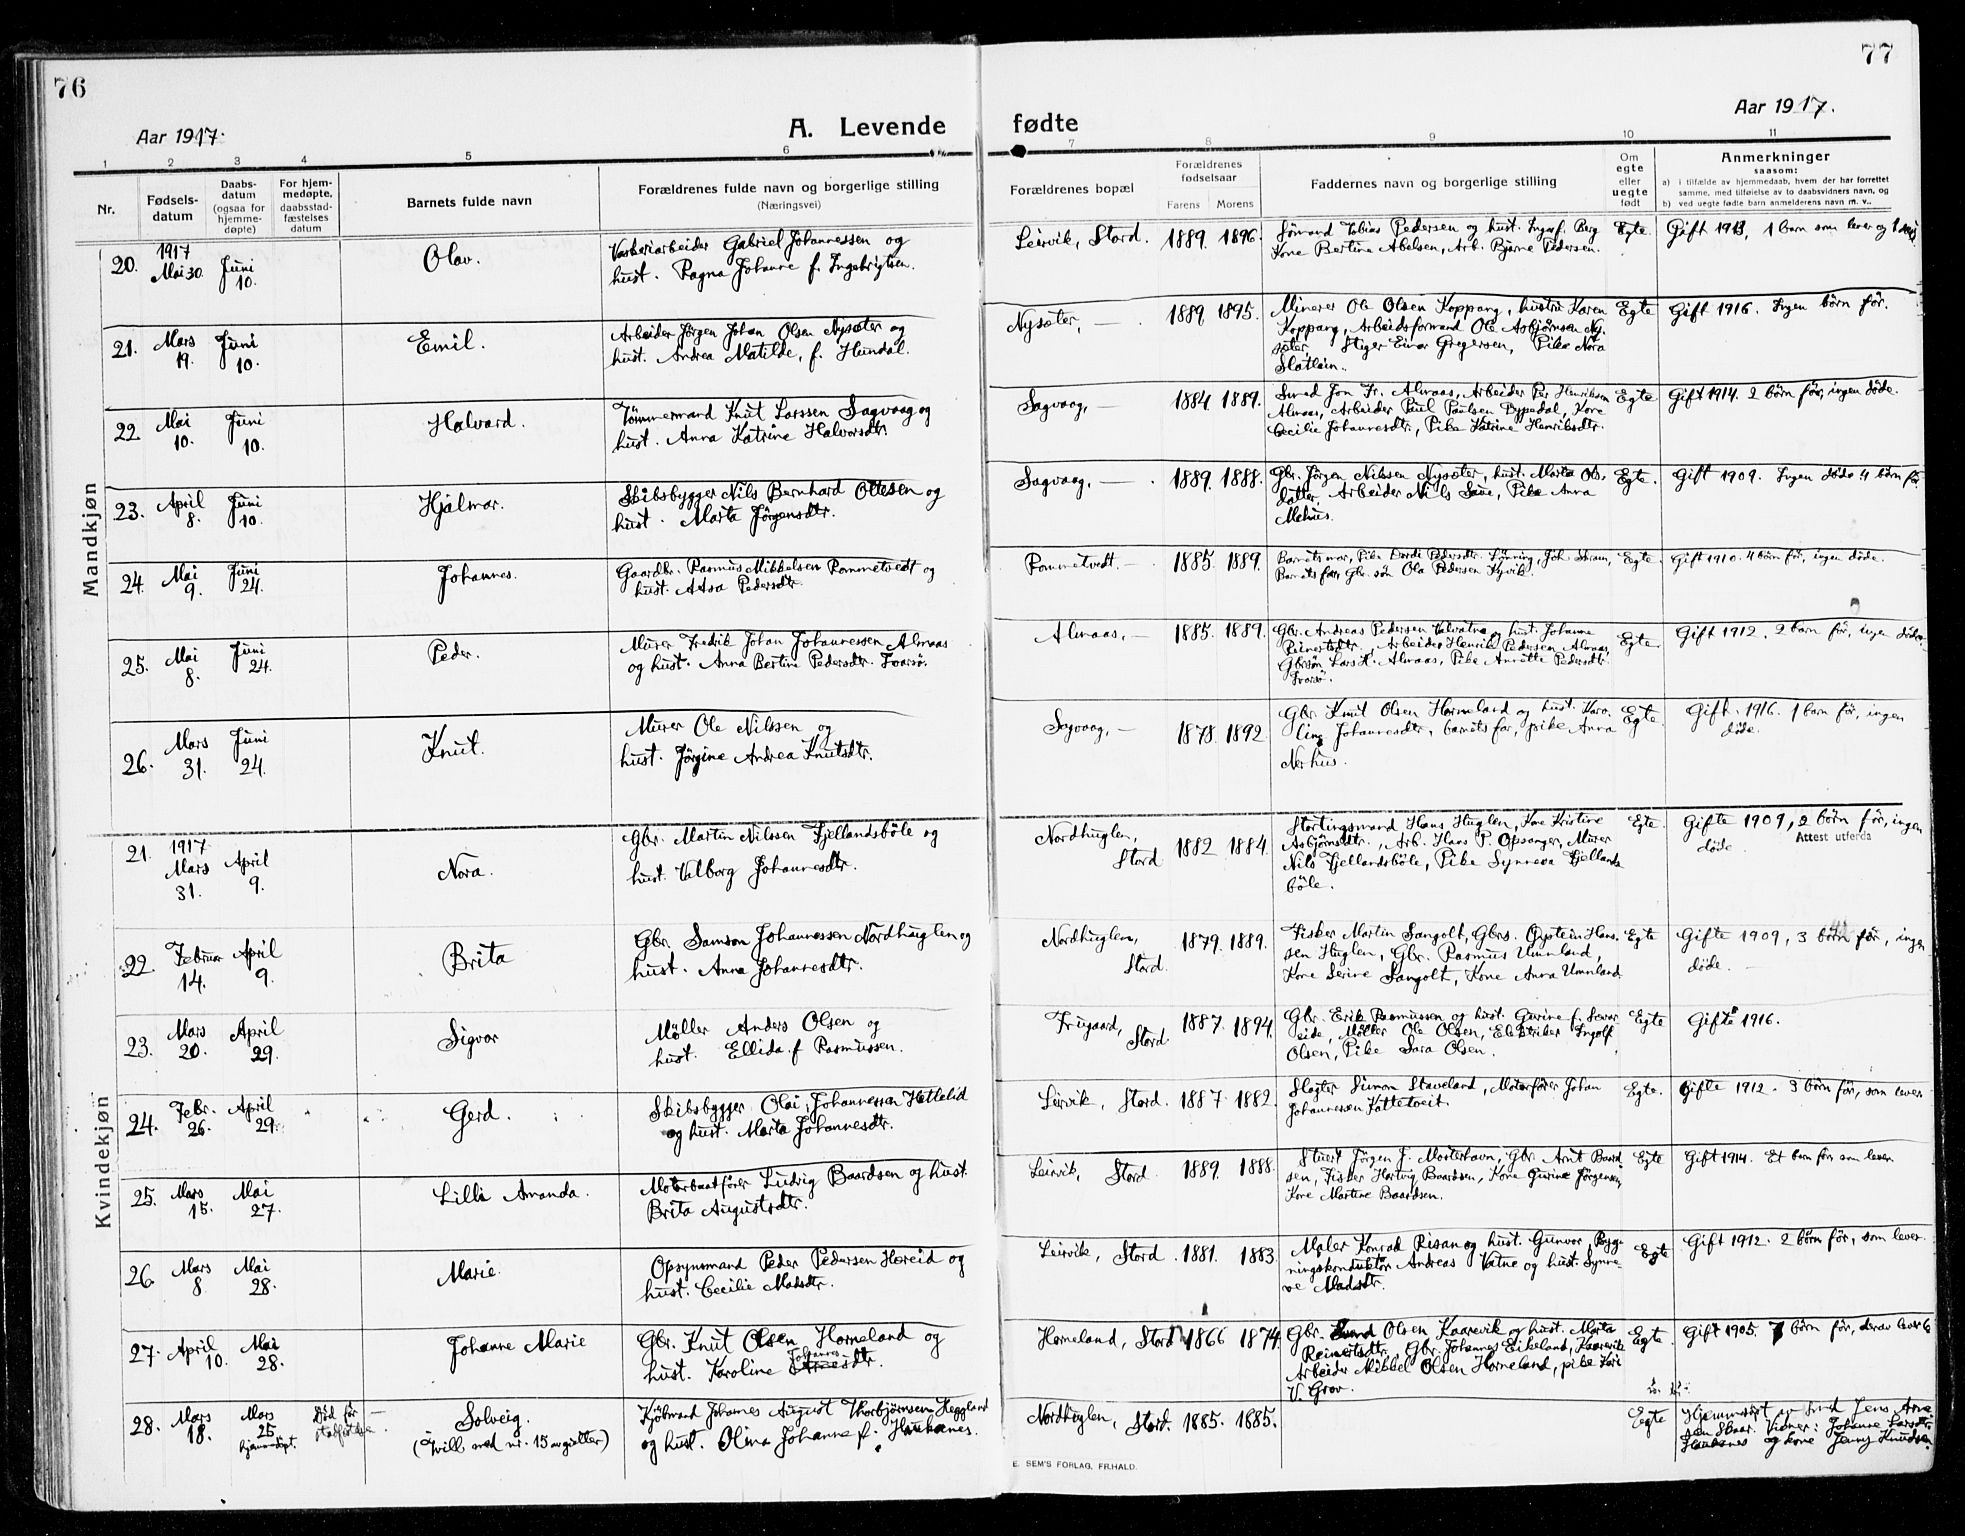 76
77
Aar 1917.
A. Levende fødte
Aar 1917.
1 2 3 4 5 6 7 8 9 10 11
Nr.
Fødsels-
datum
Daabs-
datum
(ogsaa for
hjemme-
døpte)
For hjem-
medøpte,
daabsstad-
fæstelses
datum
Barnets fulde navn
Forældrenes fulde navn og borgerlige stilling
(Næringsvei)
Forældrenes bopæl
Forældrenes
fødselsaar
Farens Morens
Faddernes navn og borgerlige stilling
Om
egte
eller
uegte
født
Anmerkninger
saasom:
a) i tilfælde av hjemmedaab, hvem der har forrettet
samme, med tilføielse av to daabsvidners navn, og
b) ved uegte fødte barn anmelderens navn m. v..
Mandkjøn
20. 1917 Mai 30. Juni 10. Olav.
Gabriel Johannessen og
hust. Ragna Johanne f. Ingebrigtsen.
Leirvik, Stord. 1889. 1896.
Tobias Pedersen og hust. Berg
Kone Bertine Abelsen, Arb. Bjarne Pedersen.
Egte. Gift 1913, 1 barn som lever og 1
21. Mars 19. Juni 10. Emil.
Arbeider Jørgen Johan Olsen Nysæter og
hust. Andrea Matilde, f. Hundal.
Nysæter, — . 1889 1895.
Minerer Ole Olsen Koppang, hustru Karen
Koppang, Arbeidsformand Ole Asbjørnsen Ny-
sæter, Stiger Einar Gregersen, Pike Nora
Slotlein.
Egte Gift 1916. Ingen børn før.
22. Mai 10. Juni 10. Halvard.
Tømmermand Knut Larssen Sagvaag og
hust. Anna Katrine Halvorsdtr.
Sagvaag, — 1884 1889.
Smed Jon Fr. Almaas, Arbeider Per Henriksen
Almaas, Arbeider Paul Paulsen Bypedal, Kone
Cecilie Johannesdtr., Pike Katrine Henriksdtr.
Egte Gift 1914. 2 børn før, ingen døde.
23. April 8. Juni 10. Hjalmar.
Skibsbygger Nils Bernhard Ottesen og
hust. Marta Jørgensdtr.
Sagvaag, — . 1889. 1888.
Gbr. Jørgen Nilsen Nysæter, hust. Marta Ols-
datter, Arbeider Nils Saue, Pike Anna
Mehus.
Egte. Gift 1909. Ingen døde. 4 børn før
24. Mai 9. Juni 24. Johannes.
Gaardbr. Rasmus Mikkelsen Rommetvedt og
hust. Aasa Pedersdtr.
Rommetvedt. — 1885 1889.
Barnets mor, Pike Dordi Pedersdtr. Lønning, Joh
Barnets far, Gbr. søn Ola Pedersen Kyvik.
Egte. Gift 1910. 4 børn før, ingen døde.
25. Mai 8. Juni 24. Peder.
Murer Fredrik Johan Johannessen Almaas
og hust. Anna Bertine Pedersdtr.
Almaas, — 1885. 1889.
Gbr. Andreas Pedersen Valvatna og hust. Johanne
Reinertsdtr., Arbeider Henrik Pedersen Almaas,
Gbrsøn Lars H. Almaas, Pike Annette Pedersdtr.
Egte. Gift 1912. 2 barn før, ingen døde.
26. Mars 31. Juni 24. Knut.
Murer Ole Nilssen og
hust. Jørgine Andrea Knutsdtr.
Sagvaag, — 1878. 1892
Gbr. Knut Olsen Horneland og hust. Karo-
line Johannesdtr., barnets far, pike Anna
Nerhus.
Egte. Gift. 1916. 1 barn før, ingen
døde.
Kvindekjøn
21. 1917 Mars 31. April 9. Nora.
Gbr. Martin Nilssen Fjellandsbøle og
hust. Valborg Johannesdtr.
Nordhuglen, Stord 1882 1884.
Stortingsmand Hans Huglen, Kone Kristine
Asbjørnsdtr., Arb. Hans P. Opsanger, Murer
Nils Fjellandsbøle, Pike Synneva Fjellands-
bøle.
Egte. Gifte 1909, 2 børn før, ingen
døde.
Attest utferda
22. Februar 14. April 9. Brita
Gbr. Samson Johannessen Nordhuglen og
hust. Anna Johannesdtr.
Nordhuglen, Stord. 1879. 1889.
Fisker Martin Sangolt, Gbrs. Øystein Hans-
sen Huglen, Gbr. Rasmus Umnland,
Kone Serine Sangolt, Kone Anna Umnland.
Egte Gifte 1909, 3 børn før, ingen
døde. —
23. Mars 20. April 29. Sigvor
Møller Anders Olsen og
hust. Ellida f. Rasmussen.
Frugaard, Stord 1887. 1894.
Gbr. Erik Rasmussen og hust. Gurine f. Sævar-
eide, Møller Ole Olsen, Elektriker Ingolf
Olsen, Pike Sara Olsen.
Egte Gifte 1916.
24. Febr. 26. April 29. Gerd.
Skibsbygger Olai Johannessen Hettelid
og hust. Marta Johannesdtr.
Leirvik, Stord. 1887. 1882.
Slagter Simon Staveland, Motorfører Johan
Johannessen Kattetveit.
Egte. Gifte 1912. 3 børn før, som lever.
25. Mars 15. Mai 27. Lilli Amanda.
Motorbaatfører Ludvig Baardsen og hust.
Brita Augustsdtr.
Leirvik, Stord. 1889. 1888.
Stuert Jørgen J. Mosterhavn, Gbr. Arnt Baard-
sen, Fisker Hartvig Baardsen, Kone Gurine Jørgensen,
Kone Martine Baardsen.
Egte Gift 1914. Et barn før som lever.
26. Mars 8. Mai 28. Marie.
Opsynsmand Peder Pedersen Høreid og
hust. Cecilie Madsdtr.
Leirvik, Stord. 1881. 1883.
Maler Konrad Risan og hust. Gunvor, Byg-
ningskonduktør Andreas Vatne og hust. Synne-
ve Madsdtr.
Egte Gift 1912. 2 børn før, som lever.
27. April 10. Mai 28. Johanne Marie
Gbr. Knut Olsen Horneland og
hust. Karoline Johannesdtr.
Horneland, Stord 1866 1874.
Gbr. Olsen Kaarevik og hust. Marta
Reinertsdtr., Gbr. Johannes Eikeland, Kaarevik
Arbeider Mikkel Olsen Horneland, pike Kari
V. Grov.
Egte. Gift 1905. 7 børn før, derav lever 6
28. Mars 18. Mars 25 hjemmedøpt. Død før stadfæstelse. — Solveig.
(Tvill. med nr. 15 av gutter)
Kjøbmand Johannes August Thorbjørnsen Heggland
og hust. Olina Johanne f. Haukanes.
Nordhuglen, Stord. 1885. 1885.
Egte Hjemmedøpt av Smed Jens Arne-
sen Skaar. Vidner: Johanne Larsdtr.
Haukanes og kone Jenny Knudsen.
E. SEM'S FORLAG, FR.HALD.